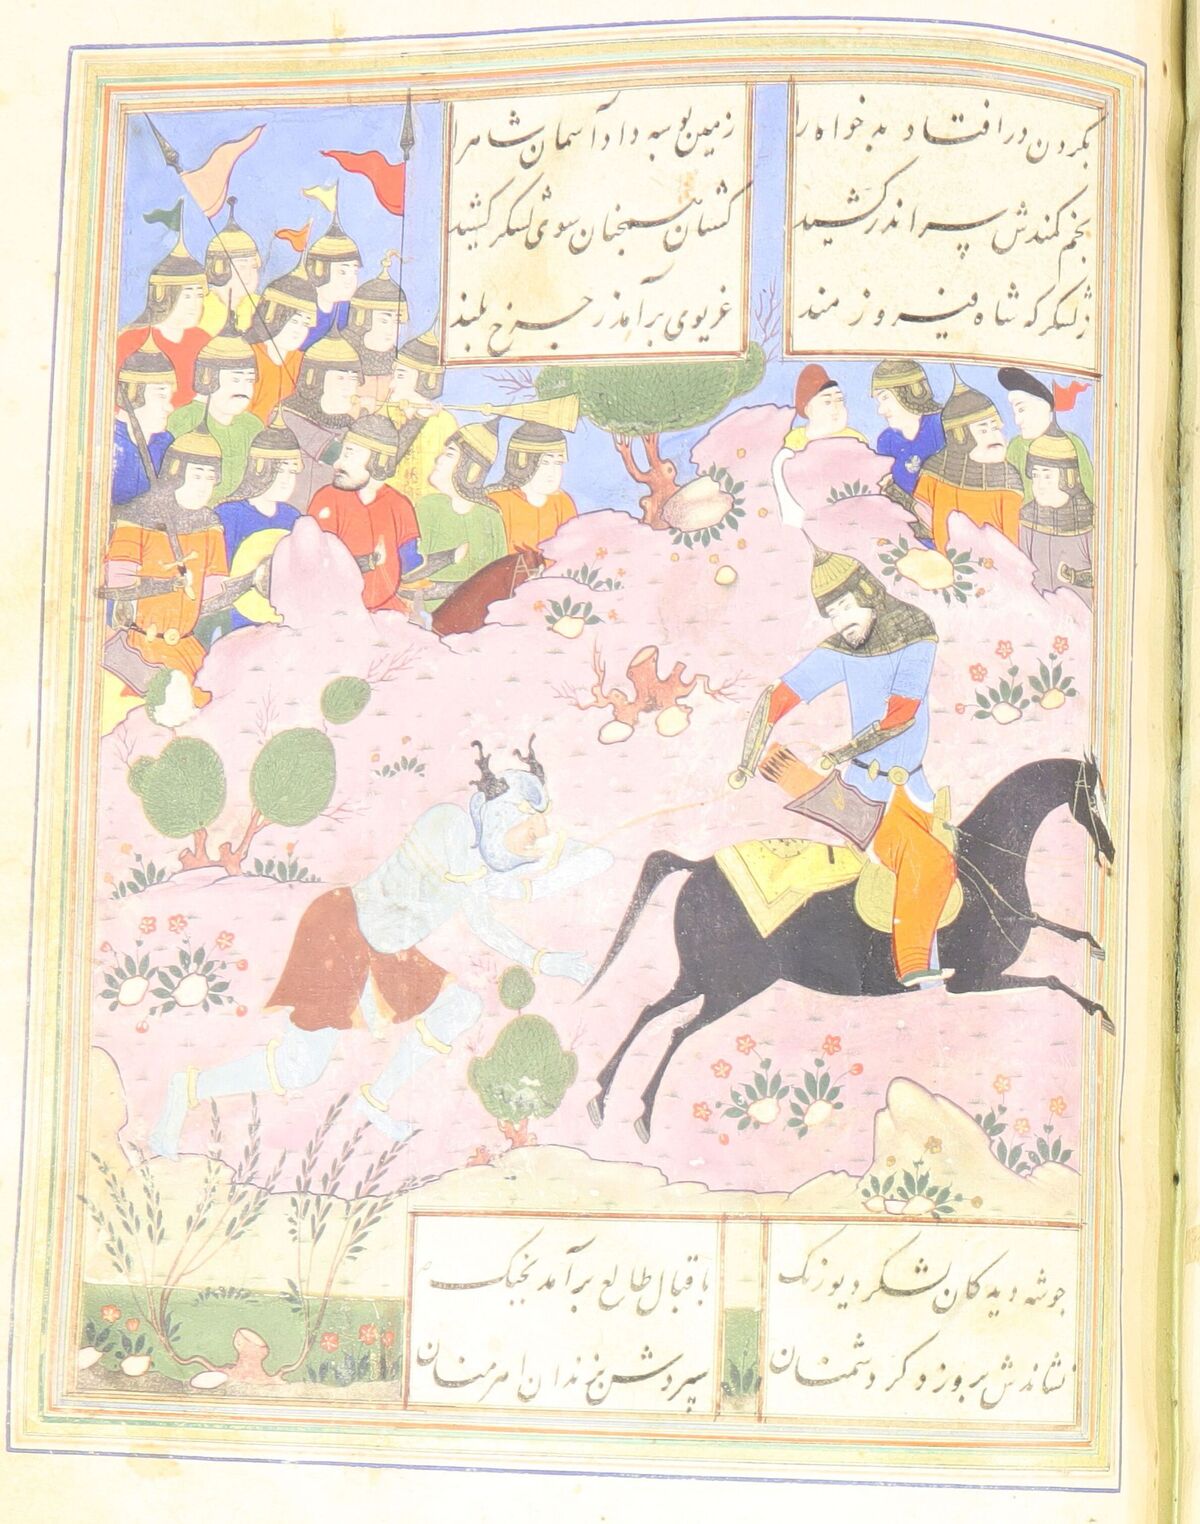 بگردن درافتاد بدخواه را زمین بوسه داد آسمان شاه را
بخم کمندش سر اندر کشید کشان همچنان سوی لشکر کشید
ز لشکر که شاه فیروزمند غریوی برآمد ز چرخ بلند
چو شه دید کان لشکر دیو زنک باقبال طالع برآمد بچنک
نشاندش بروز و کر دشمنان سپردش بزندان اهرمنان